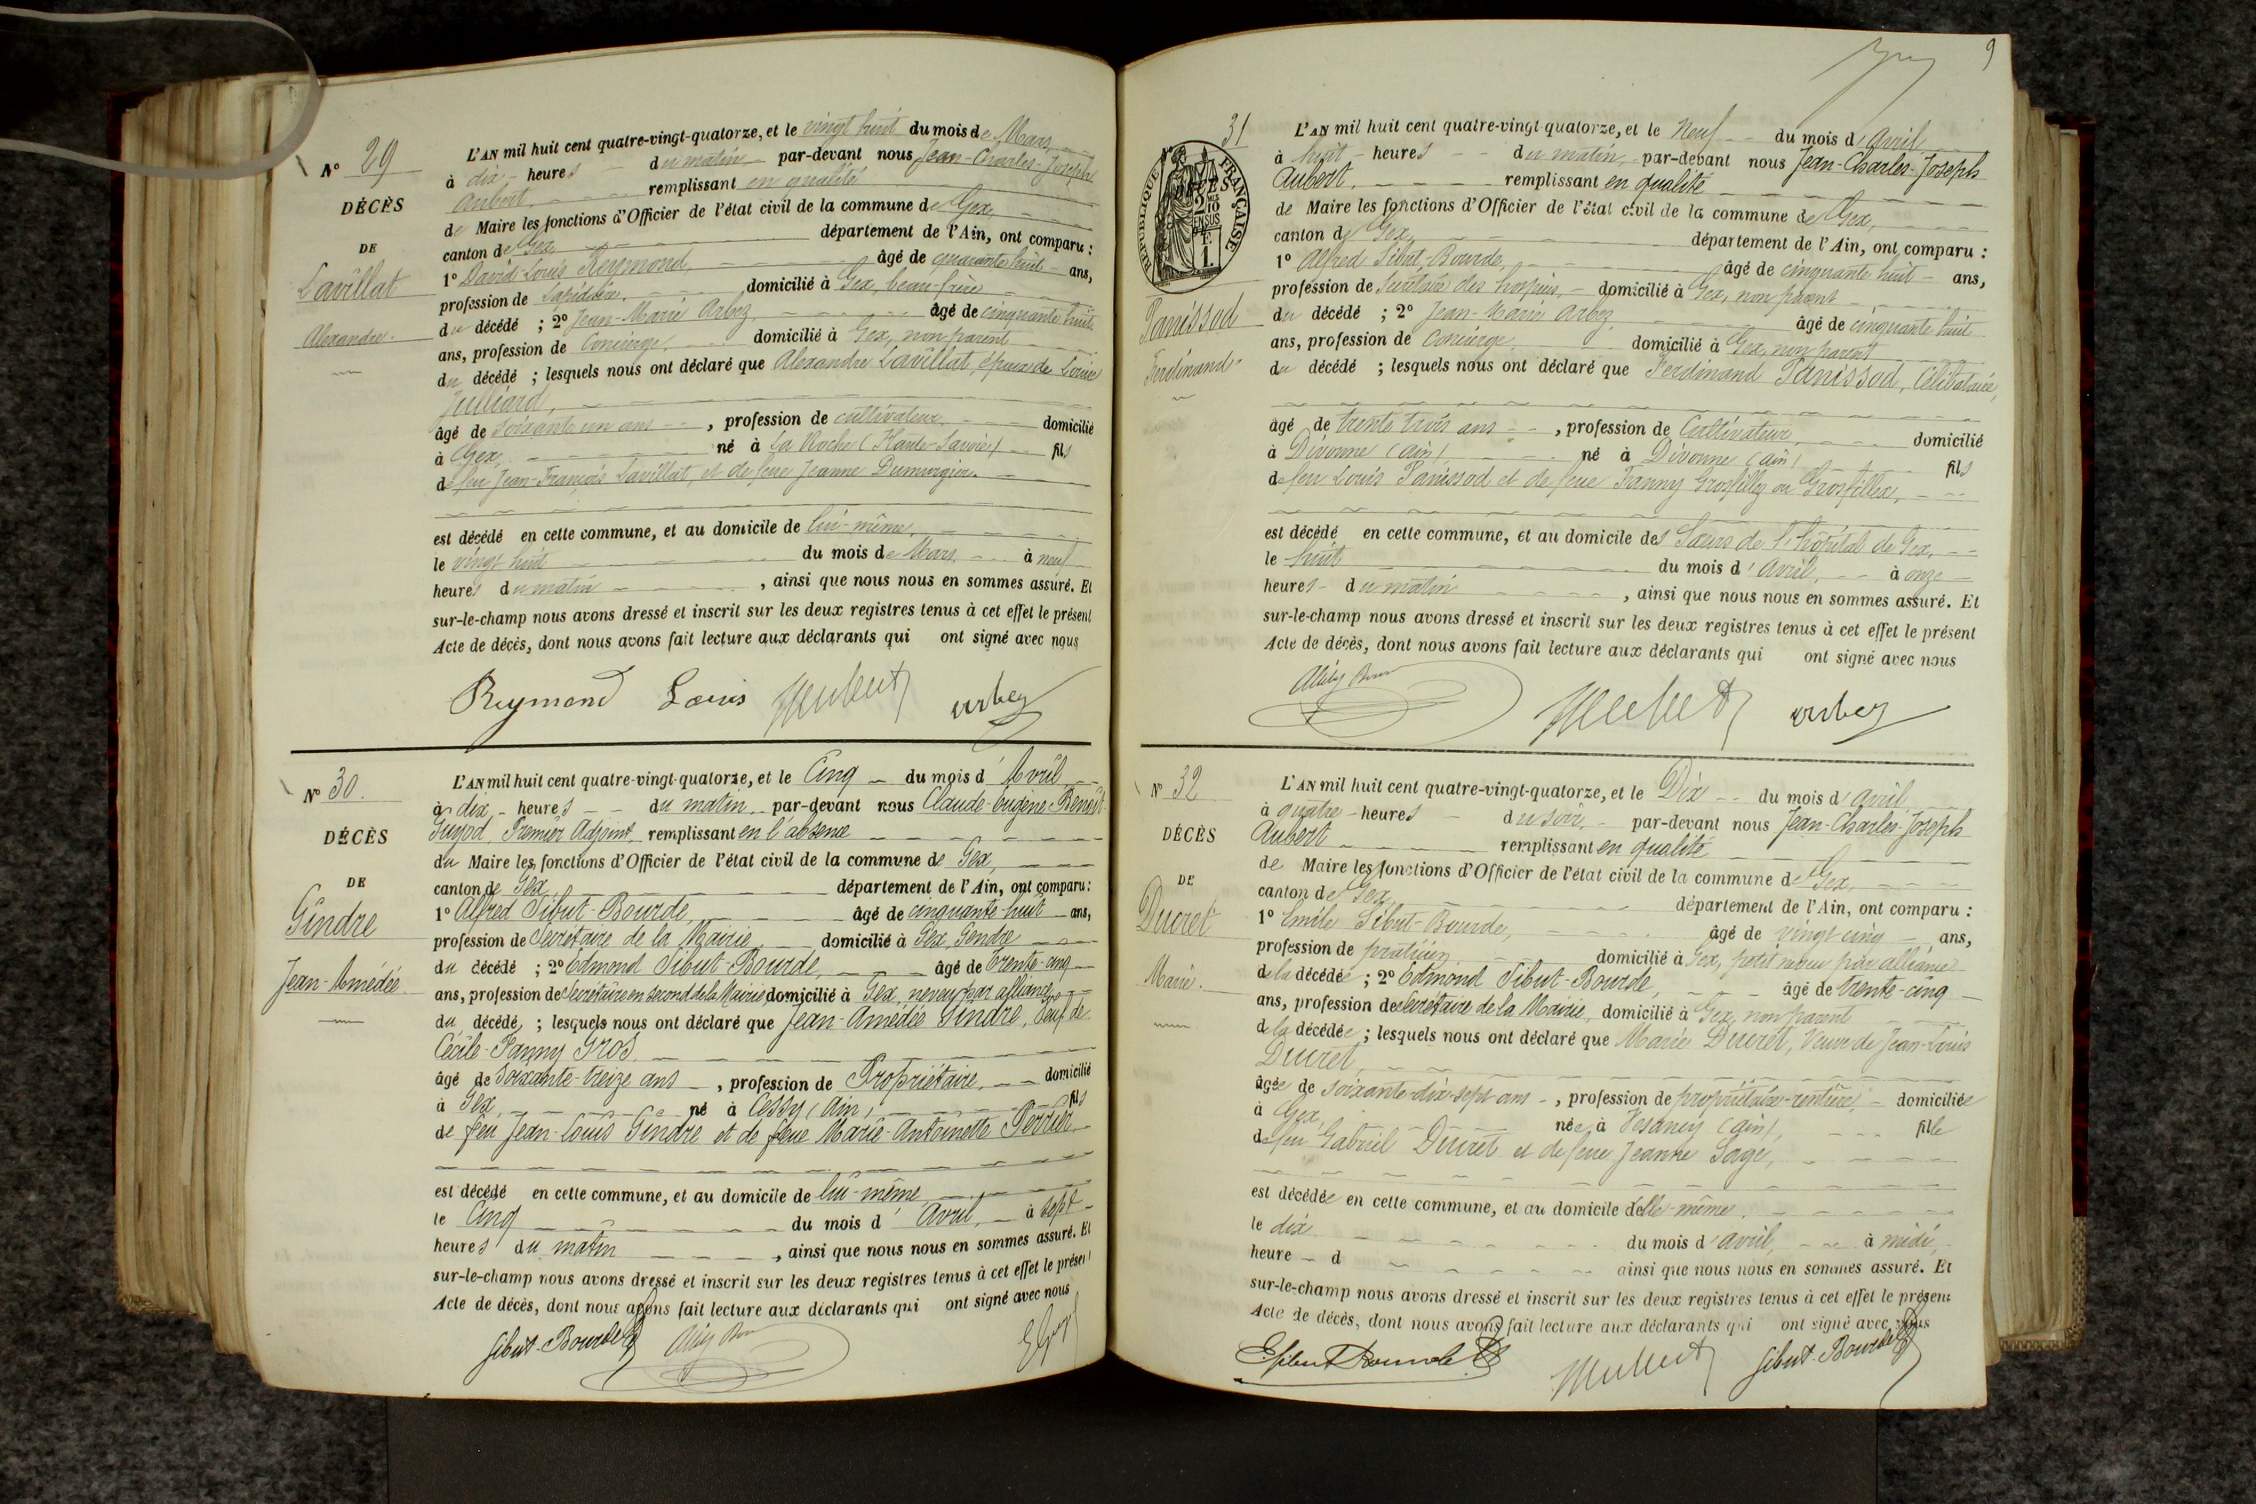 N° 29
DÉCÈS
DE
Lavillat
Alexandre.
L'AN mil huit cent quatre-vingt-quatorze, et le vingt huit du mois de Mars
à dix heures du matin par-devant nous Jean-Charles-Joseph
Aubert. remplissant en qualité
de Maire les fonctions d'Officier de l'état civil de la commune de Gex,
canton de Gex département de l'Ain, ont comparu :
1° David Louis Reymond, âgé de quarante huit ans,
profession de Lapidaire, domicilié à Gex, beau-frère
du décédé ; 2° Jean-Marie Arbez, âgé de cinquante huit
ans, profession de Concierge, domicilié à Gex, non parent
du décédé ; lesquels nous ont déclaré que Alexandre Lavillat, époux de Louise
Julliard,
âgé de soixante un ans, profession de cultivateur, domicilié
à Gex, né à La Roche (Haute-Savoie) fils
de feu Jean-François Lavillat, et de feue Jeanne
est décédé en cette commune, et au domicile de lui-même,
le vingt huit du mois de Mars, à neuf
heures du matin, ainsi que nous nous en sommes assuré. Et
sur-le-champ nous avons dressé et inscrit sur les deux registres tenus à cet effet le présent
Acte de décès, dont nous avons fait lecture aux déclarants qui ont signé avec nous
Reymond Louis Aubert Arbez
N° 30.
DÉCÈS
DE
Gindre
Jean-Amédée
L'AN mil huit cent quatre-vingt-quatorze, et le Cinq du mois d'Avril
à dix heures du matin par-devant nous Claude-Eugène-Benoît
Guyod, Premier Adjoint, remplissant en l'absence
du Maire les fonctions d'Officier de l'état civil de la commune de Gex,
canton de Gex département de l'Ain, ont comparu :
1° Alfred Sibut-Bourde, âgé de cinquante-huit ans,
profession de Secrétaire de la Mairie, domicilié à Gex, Gendre
du décédé ; 2° Edmond Sibut-Bourde, âgé de trente-cinq
ans, profession de Secrétaire en second de la Mairie domicilié à Gex, neveu par alliance
du décédé ; lesquels nous ont déclaré que Jean-Amédée Gindre, Veuf de
Cécile-Fanny Gros
âgé de Soixante-treize ans, profession de Propriétaire, domicilié
à Gex, né à Cessy (Ain) fils
de feu Jean-Louis Gindre et de feue Marie-Antoinette Perrier
est décédé en cette commune, et au domicile de lui-même
le Cinq du mois d'Avril, à sept
heures du matin, ainsi que nous nous en sommes assuré. Et
sur-le-champ nous avons dressé et inscrit sur les deux registres tenus à cet effet le présent
Acte de décès, dont nous avons fait lecture aux déclarants qui ont signé avec nous
Sibut-Bourde
9
31
RÉPUBLIQUE FRANÇAISE
Panissod
Ferdinand
L'AN mil huit cent quatre-vingt-quatorze, et le Neuf du mois d'Avril
à huit heures du matin, par-devant nous Jean-Charles-Joseph
Aubert. remplissant en qualité
de Maire les fonctions d'Officier de l'état civil de la commune de Gex,
canton de Gex, département de l'Ain, ont comparu :
1° Alfred Sibut-Bourde, âgé de cinquante huit ans,
profession de Secrétaire des hospices, domicilié à Gex, non parent
du décédé ; 2° Jean-Marie Arbez âgé de cinquante huit
ans, profession de concierge domicilié à Gex, non parent
du décédé ; lesquels nous ont déclaré que Ferdinand Panissod, Célibataire,
âgé de trente trois ans, profession de Cultivateur, domicilié
à Divonne (Ain), né à Divonne (Ain) fils
de feu Louis Panissod et de feue Fanny Grosfilley ou Grosfillex,
est décédé en cette commune, et au domicile des Soeurs de l'hôpital de Gex,
le huit du mois d'Avril, à onze
heures du matin, ainsi que nous nous en sommes assuré. Et
sur-le-champ nous avons dressé et inscrit sur les deux registres tenus à cet effet le présent
Acte de décès, dont nous avons fait lecture aux déclarants qui ont signé avec nous
Aubert Arbez
N° 32
DÉCÈS
DE
Ducret
Marie.
L'AN mil huit cent quatre-vingt-quatorze, et le Dix du mois d'Avril
à quatre heures du soir, par-devant nous Jean-Charles-Joseph
Aubert remplissant en qualité
de Maire les fonctions d'Officier de l'état civil de la commune de Gex
canton de Gex, département de l'Ain, ont comparu :
1° Emile Sibut-Bourde, âgé de vingt cinq ans,
profession de praticien domicilié à Gex, petit neveu par alliance
de la décédée ; 2° Edmond Sibut-Bourde, âgé de trente-cinq
ans, profession de Secrétaire de la Mairie, domicilié à Gex, non parent
de la décédée ; lesquels nous ont déclaré que Marie Ducret, Veuve de Jean-Louis
Ducret,
âgée de soixante-dix-sept ans, profession de propriétaire-rentière, domiciliée
à Gex, née à Vesancy (Ain), fille
de feu Gabriel Ducret et de feue Jeanne Sage,
est décédée en cette commune, et au domicile d'elle-même.
le dix du mois d'Avril, à midi,
heure d ainsi que nous nous en sommes assuré. Et
sur-le-champ nous avons dressé et inscrit sur les deux registres tenus à cet effet le présent
Acte de décès, dont nous avons fait lecture aux déclarants qui ont signé avec nous
ESibut Bourde Aubert Sibut-Bourde